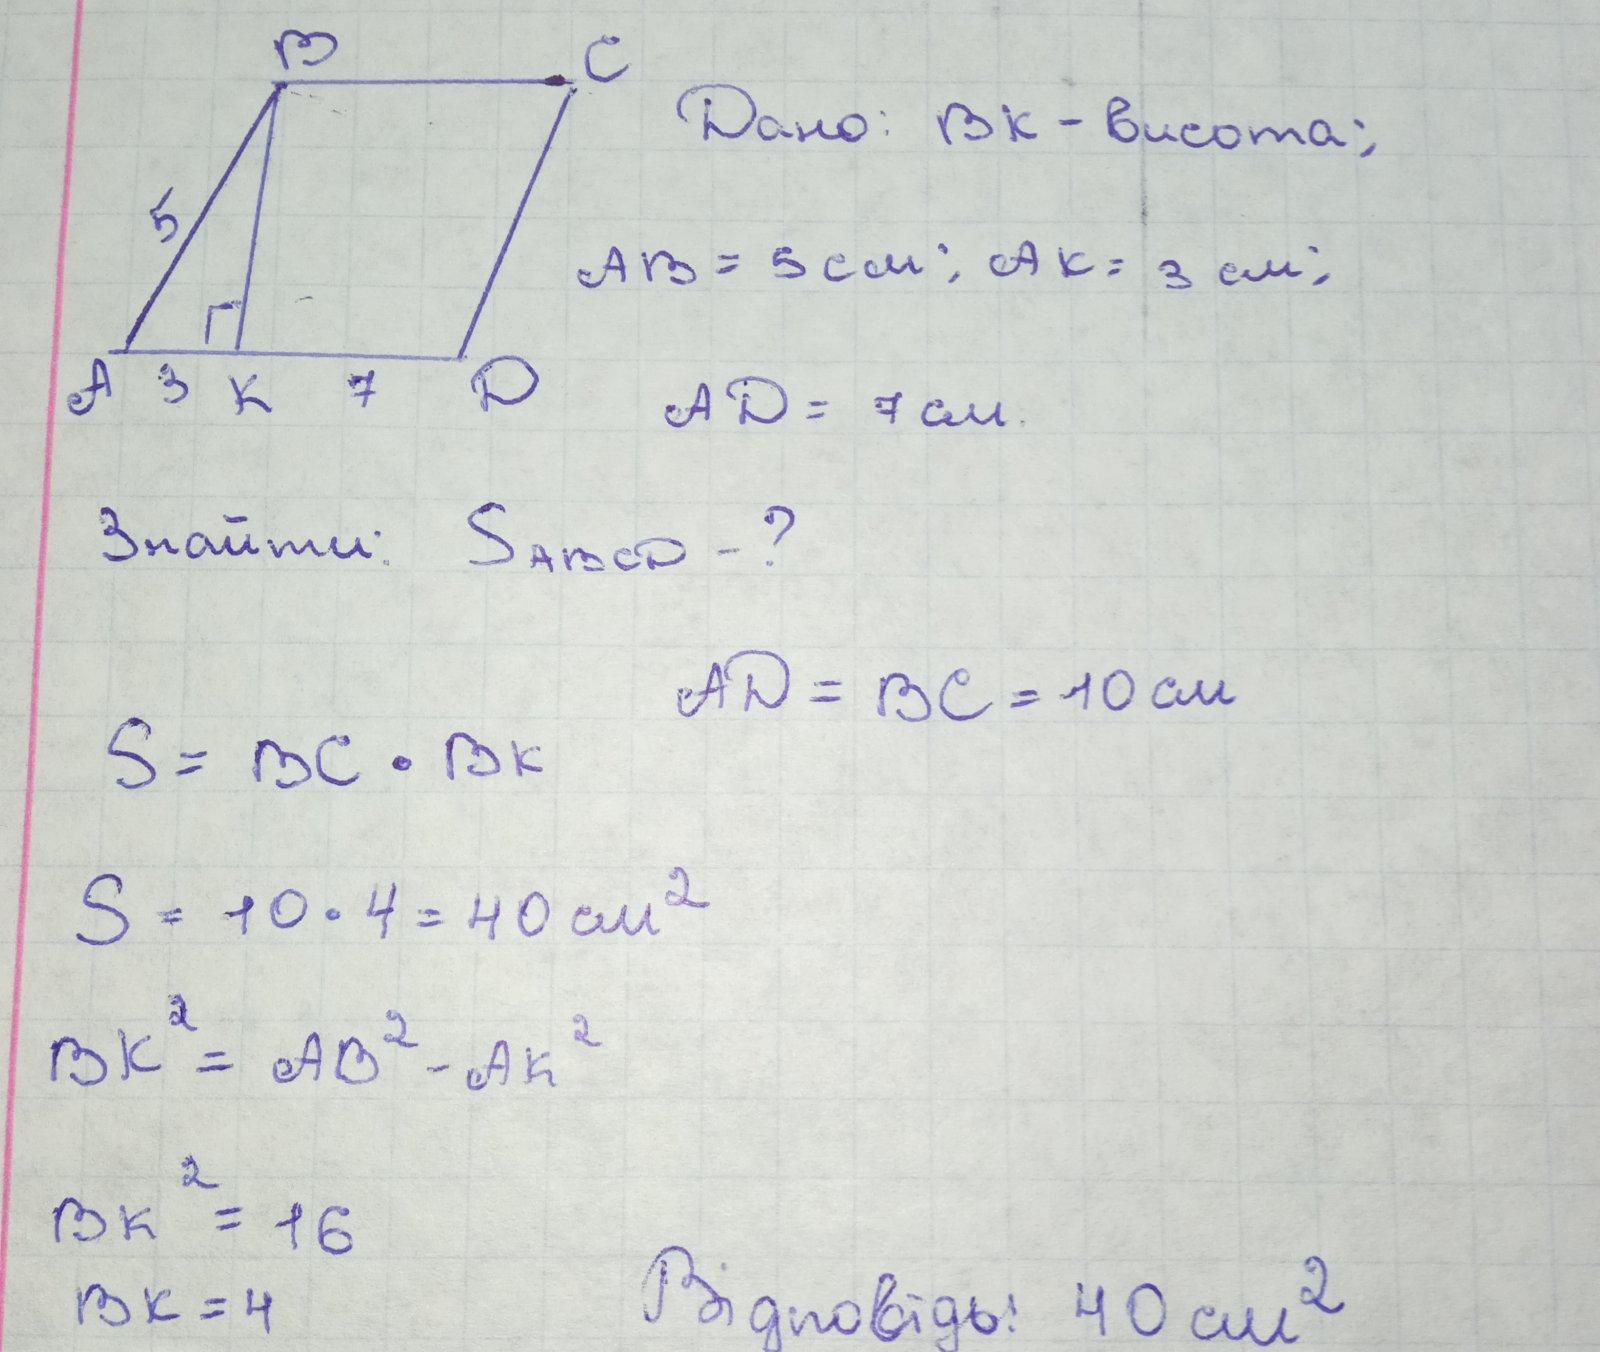 B C
Дано: BK - висота;
5
AB = 5 см; AK = 3 см;
A 3 K 7 D
AD = 7 см.
Знайти: S ABCD - ?
AD = BC = 10 см
S = BC · BK
S = 10 · 4 = 40 см²
BK² = AB² - AK²
BK² = 16
BK = 4
Відповідь: 40 см²